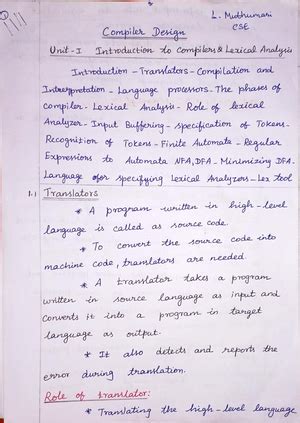 L. Muthumari
CSE
Compiler Design
Unit-I Introduction to Compilers & Lexical Analysis
Introduction - Translators - Compilation and
Interpretation - Language processors - The phases of
compiler - Lexical Analysis - Role of lexical
Analyzer - Input Buffering - specification of Tokens -
Recognition of Tokens - Finite Automata - Regular
Expressions to Automata NFA, DFA - Minimizing DFA.
Language for specifying Lexical Analyzers - Lex tool
1.1 Translators
* A program written in high-level
language is called as source code.
* To convert the source code into
machine code, translators are needed
* A translator takes a program
written in source language as input and
converts it into a program in target
language as output.
* It also detects and reports the
error during translation.
Role of translator:
* Translating the high-level language